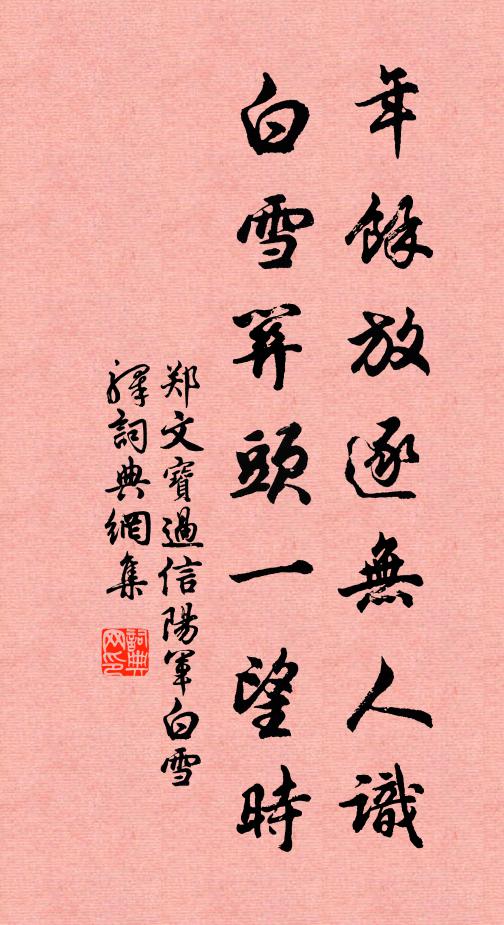 年餘放逐無人識
白雪關頭一望時
郑文寶過信陽軍白雪
驛詞典網集
詞典
网印